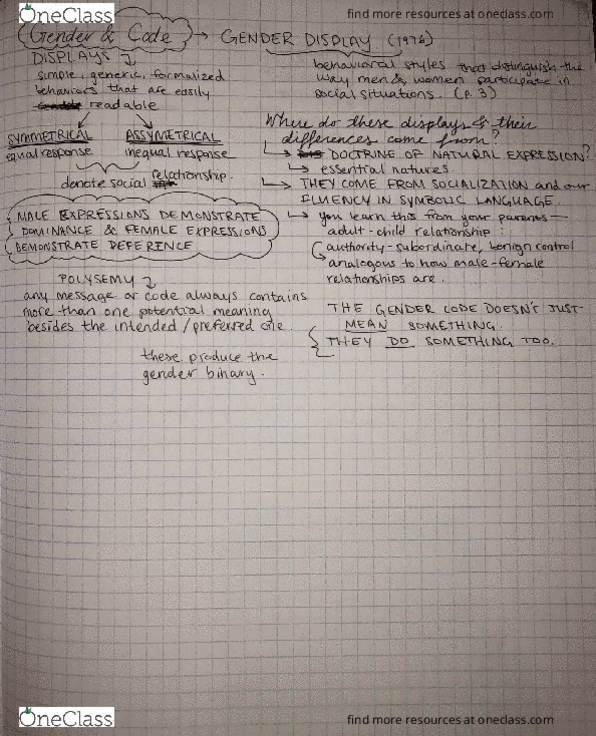 OneClass
find more resources at oneclass.com
Gender & Code → GENDER DISPLAY (1976)
DISPLAYS
simple, generic, formalized
behaviors that are easily
readable
SYMMETRICAL
equal response
ASSYMETRICAL
inequal response
denote social relationship.
MALE EXPRESSIONS DEMONSTRATE
DOMINANCE & FEMALE EXPRESSIONS
DEMONSTRATE DEFERENCE
POLYSEMY
any message or code always contains
more than one potential meaning
besides the intended/preferred one.
these produce the
gender binary.
behavioral styles that distinguish the
way men & women participate in
social situations. (p. 3)
Where do these displays & their
differences come from?
DOCTRINE OF NATURAL EXPRESSION?
essential natures.
THEY COME FROM SOCIALIZATION and our
FLUENCY IN SYMBOLIC LANGUAGE.
you learn this from your parents—
adult-child relationship:
authority-subordinate, benign control
analogous to how male-female
relationships are.
THE GENDER CODE DOESN'T JUST
MEAN SOMETHING.
THEY DO SOMETHING TOO.
OneClass
find more resources at oneclass.com